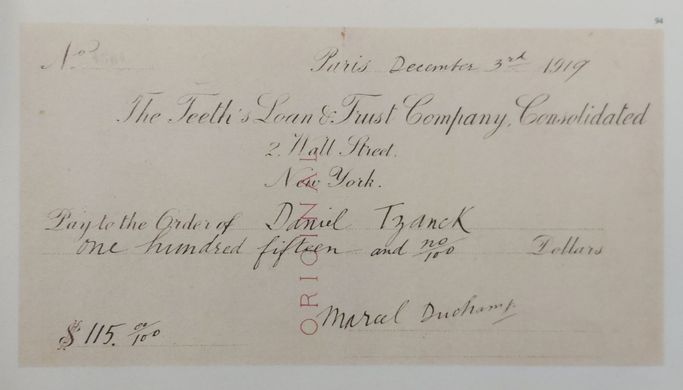 94
No
Paris December 3rd 1919
The Teeth's Loan & Trust Company, Consolidated
2 Wall Street.
New York.
Pay to the Order of Daniel Tzanck
one hundred fifteen and no/100 Dollars
$ 115. oo/100
Marcel Duchamp
ORIGINAL